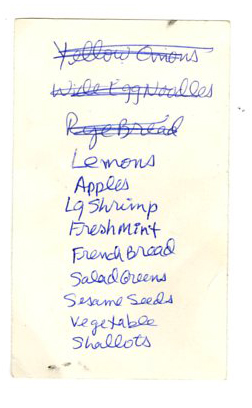 Yellow Onions
Wide Egg Noodles
Rye Bread
Lemons
Apples
Lg Shrimp
Fresh Mint
French Bread
Salad Greens
Sesame Seeds
Vegetable
Shallots